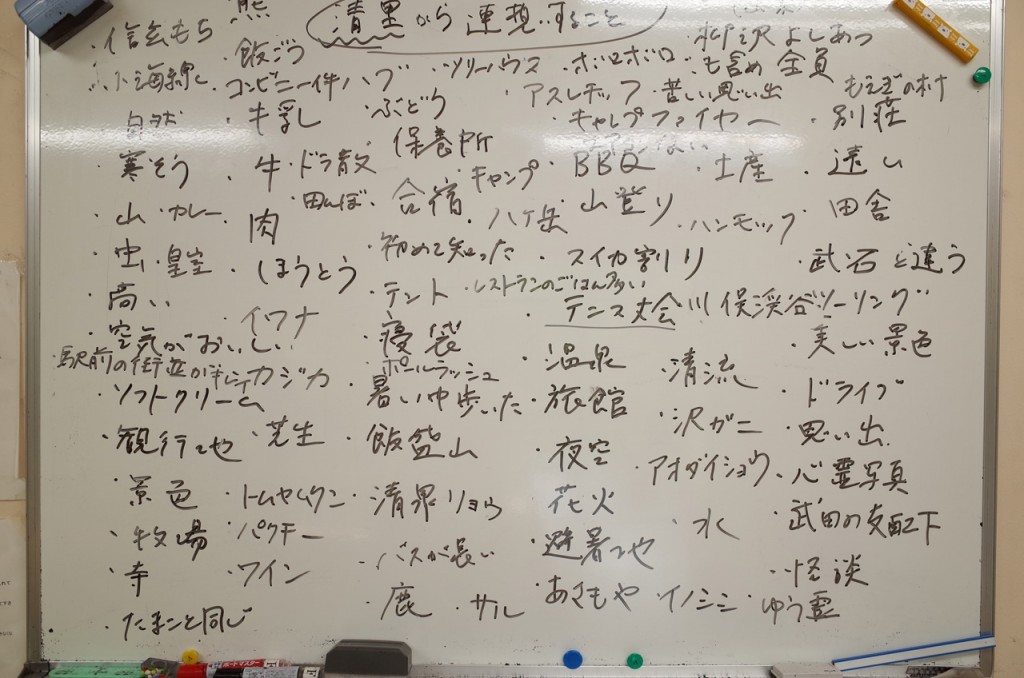 熊
清里から連想すること
・信玄もち
飯ごう
・ツリーハウス
ボロボロ
柳沢よしあつ
も含め全員
小海線
コンビニ一件ハブ
・アスレチック
・苦しい思い出
もえぎの村
自然
・牛乳
・ぶどう
・キャンプファイヤー
・別荘
・寒そう
・牛
・ドラ散
・保養所
・キャンプ
・BBQ
・土産
・遠い
・山
・カレー
・肉
・田んぼ
・合宿
・八ヶ岳
・山登り
・ハンモック
・田舎
・虫
・皇室
・ほうとう
・初めて知った
・スイカ割り
・武石と違う
・高い
・イワナ
・テント
・レストランのごはん多い
・テニス大会
川俣渓谷ツーリング
・空気がおいしい
・寝袋
・温泉
・清流
・美しい景色
・駅前の街並がキレイ
カジカ
・ポールラッシュ
・ソフトクリーム
・暑い中歩いた
・旅館
・沢ガニ
・ドライブ
・観行地
・芝生
・飯盛山
・夜空
・アオダイショウ
・思い出
・景色
・トムヤムクン
・清泉リョウ
・花火
・水
・心霊写真
・牧場
・パクチー
・バスが長い
・避暑地
・武田の支配下
・寺
・ワイン
・鹿
・サル
・あさもや
・イノシシ
・怪談
・ゆう霊
・たまごと同じ